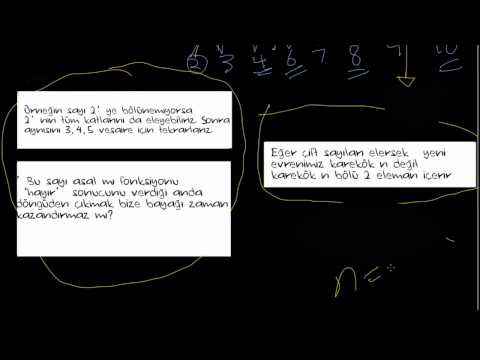 2 3 4 6 7 8 9 10
Örneğin sayı 2' ye bölünemiyorsa
2' nin tüm katlarını da eleyebiliriz Sonra
aynısını 3, 4, 5 vesaire için tekrarlarız
" Bu sayı asal mı fonksiyonu
"hayır" sonucunu verdiği anda
döngüden çıkmak bize bayağı zaman
kazandırmaz mı?
Eğer çift sayıları elersek yeni
evrenimiz karekök n değil
karekök n bölü 2 eleman içerir
n =